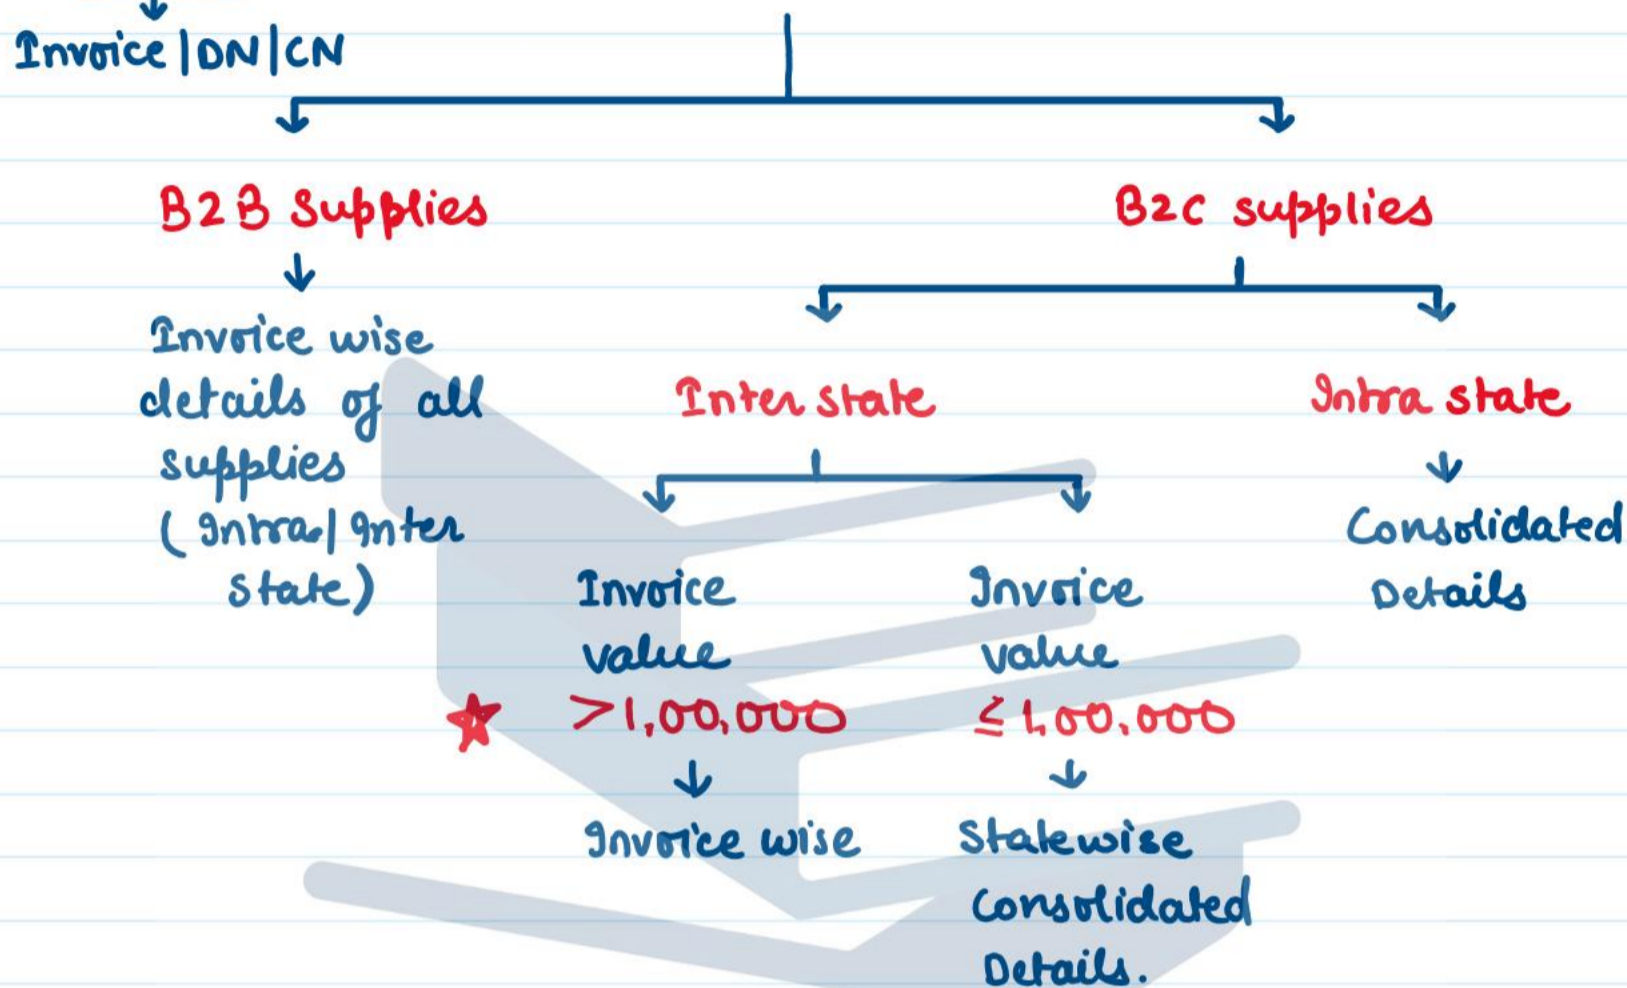 Invoice|DN|CN
B2B Supplies
Invoice wise
details of all
supplies
(Intra/Inter
State)
B2C supplies
Inter state
Invoice
value
>1,00,000
Invoice wise
Invoice
value
≤ 1,00,000
Statewise
Consolidated
Details.
Intra state
Consolidated
Details